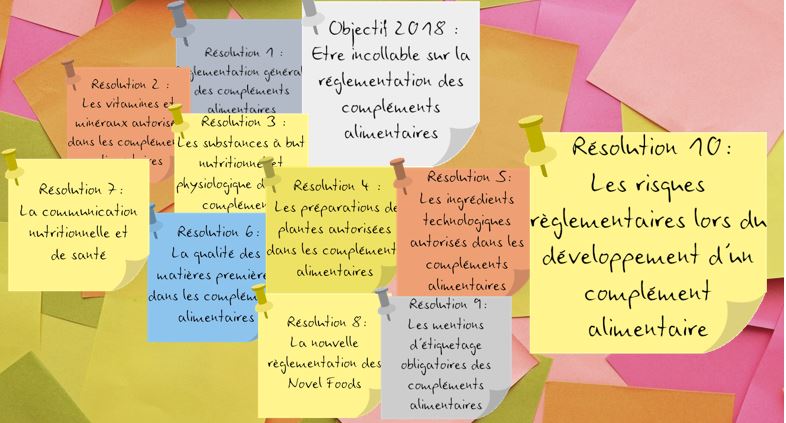 Objectif 2018 :
Etre incollable sur la
réglementation des
compléments
alimentaires
Résolution 1 :
des compléments
alimentaires
Résolution 2 :
Les vitamines et
minéraux autorisé
dans les complémen
Résolution 3 :
Les substances à but
nutritionnel et
physiologique d
complémen
Résolution 4 :
Les préparations de
plantes autorisées
dans les complément
alimentaires
Résolution 5:
Les ingrédients
technologiques
autorisés dans les
compléments
alimentaires
Résolution 6:
La qualité des
matières première
dans les complém
alimentaires
Résolution 7:
La communication
nutritionnelle et
de santé
Résolution 8:
La nouvelle
règlementation des
Novel Foods
Résolution 9:
Les mentions
d'étiquetage
obligatoires des
compléments
alimentaires
Résolution 10:
Les risques
règlementaires lors du
développement d'un
complément
alimentaire